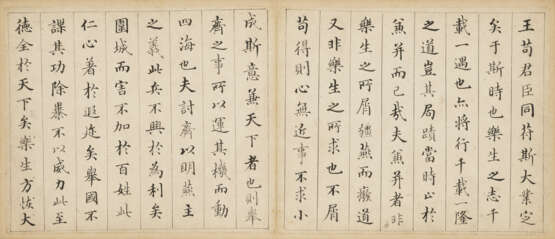 王苟君臣同符斯大業定
矣于斯時也樂生之志千
載一遇也亦將行千載一隆
之道豈其局蹟當時止於
兼并而已哉夫兼并者非
樂生之所屑彊燕而癈道
又非樂生之所求也不屑
苟得則心無近事不求小
成斯意兼天下者也則舉
齊之事所以運其機而動
四海也夫討齊以明燕主
之義此兵不興於為利矣
圍城而害不加於百姓此
仁心著於遐迩矣舉國不
謀其功除暴不以威力此至
德全於天下矣樂生方恢大